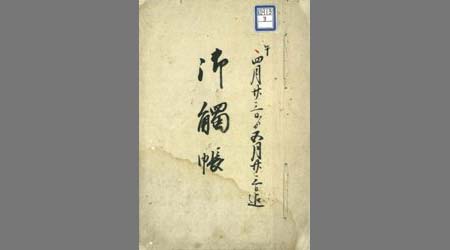 午
四月廿三日ゟ五月廿三日迄
御觸帳